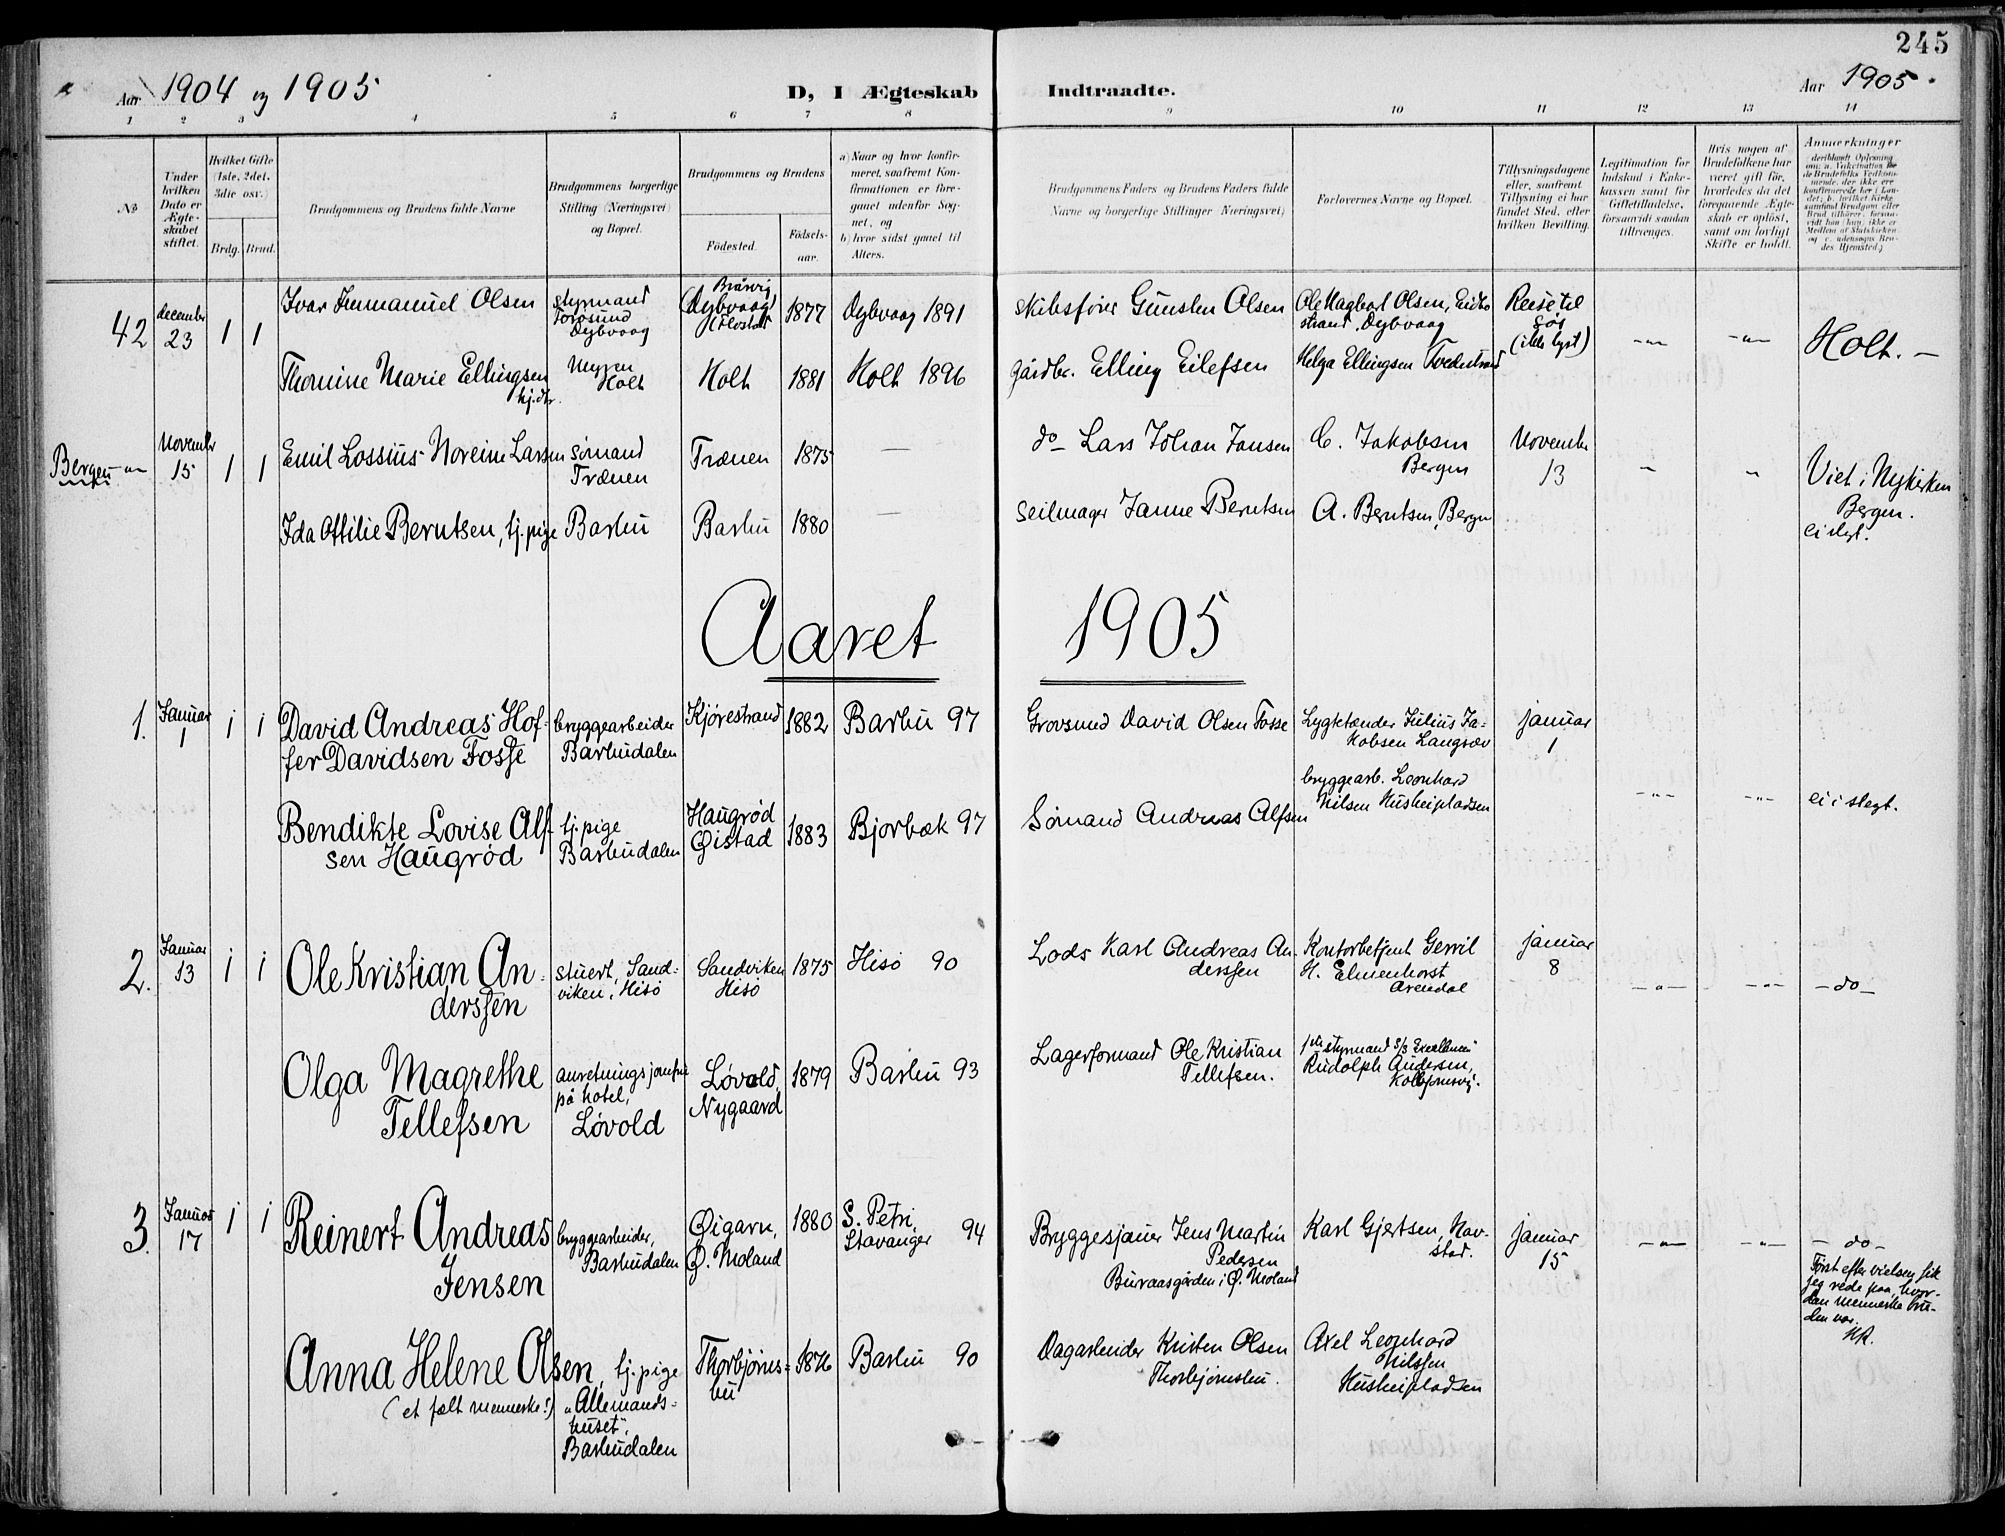 245
Aar 1904 og 1905
D, I Ægteskab Indtraadte.
Aar 1905.
1 2 3 4 5 6 7 8 9 10 11 12 13 14
№
Under
hvilken
Dato er
Ægte-
skabet
stiftet.
Hvilket Gifte
(1ste, 2det,
3die osv.)
Brdg. Brud.
Brudgommens og Brudens fulde Navne
Brudgommens borgerlige
Stilling (Næringsvei)
og Bopæl.
Brudgommens og Brudens
Fødested.
Fødsels-
aar.
a) Naar og hvor konfir-
meret, saafremt Kon-
firmationen er fore-
gaaet udenfor Sog-
net, og
b) hvor sidst gaaet til
Alters.
Brudgommens Faders og Brudens Faders fulde
Navne og borgerlige Stillinger Næringsvei)
Forlovernes Navne og Bopæl.
Tillysningsdagene
eller, saafremt
Tillysning ei har
fundet Sted, efter
hvilken Bevilling.
Legitimation for
Indskud i Enke-
kassen samt for
Giftetilladelse,
forsaavidt saadan
tiltrænges.
Hvis nogen af
Brudefolkene har
været gift før,
hvorledes da det
foregaaende Ægte-
skab er opløst,
samt om lovligt
Skifte er holdt.
Anmærkninger
42
december
23
1 1
Ivar Immanuel Olsen
styrmand
Torøsund
Dybvaag
Dybvaag
1877
Dybvaag 1891
skibsfører Gunsten Olsen
Ole Hagbart Olsen,
strand, Dybvaag
Reise til
søs
(ikke lyst)
Holt. —
Thomine Marie Ellingsen
Myren
Holt
Holt
1881
Holt 1896
gårdbr. Elling Eilefsen
Helga Ellingsen Tvedestrand
Bergen
November
15
1 1
Emil Lossius Noreim Larsen
sømand
Trænen
Trænen
1875
—
do— Lars Johan Jansen
C. Jakobsen
Bergen
November
13
Viet i Nykirken
Bergen.
ei slegt.
Ida Ottilie Berntsen, tj.pige
Barbu
Barbu
1880
—
seilmager Janne Berntsen
A. Berntsen, Bergen
Aaret 1905
1.
Januar
1
1 1
David Andreas Hof-
fer Davidsen Fosse
bryggearbeider
Barbudalen
Kjørestrand
1882
Barbu 97
Grovsmed David Olsen Fosse
Lygtetænder Julius Ja-
kobsen Langsæv
januar
1
Bendikte Lovise Alf-
sen Haugrød
tj.pige
Barbudalen
Haugrød
Øistad
1883
Bjorbæk 97
Sømand Andreas Alfsen
bryggearb. Leonhard
Nilsen Husheipladsen
—"— —"—
ei i slegt.
2.
Januar
13
1 1
Ole Kristian An-
derssen
stuert, Sand-
viken i Hisø
Sandviken
Hisø
1875
Hisø 90
Lods Karl Andreas An-
derssen
Kontorbetjent Gerril
H. Elmenhorst
Arendal
januar
8
—"— —"—
—do—
Olga Magrethe
Tellefsen
anretningsjomfru
på hotel,
Løvold
Løvold,
Nygaard
1879
Barbu 93
Lagerformand Ole Kristian
Tellefsen.
1ste styrmand S/S Excellencen
Rudolph Andersen,
3.
Januar
17
1 1
Reinert Andreas
Jensen
bryggearbeider,
Barbudalen
Øigarn,
Ø. Moland
1880
S. Petri,
Stavanger 94
Bryggesjauer Jens Martin
Pedersen
Buraasgården i Ø. Moland
Karl Gjertsen, Nav-
stad.
januar
15
—"— —"—
—do—
Først efter vielsen fik
jeg rede paa, hvor-
dan menneske bru-
den var.
Anna Helene Olsen, tj.pige
(et fælt menneske!)
"Allemands-
huset",
Barbudalen
Thorbjørns-
bu
1876
Barbu 90
Dagarbeider Kristen Olsen
Thorbjørnsbu.
Axel Leonhard
Nilssen
Husheipladsen